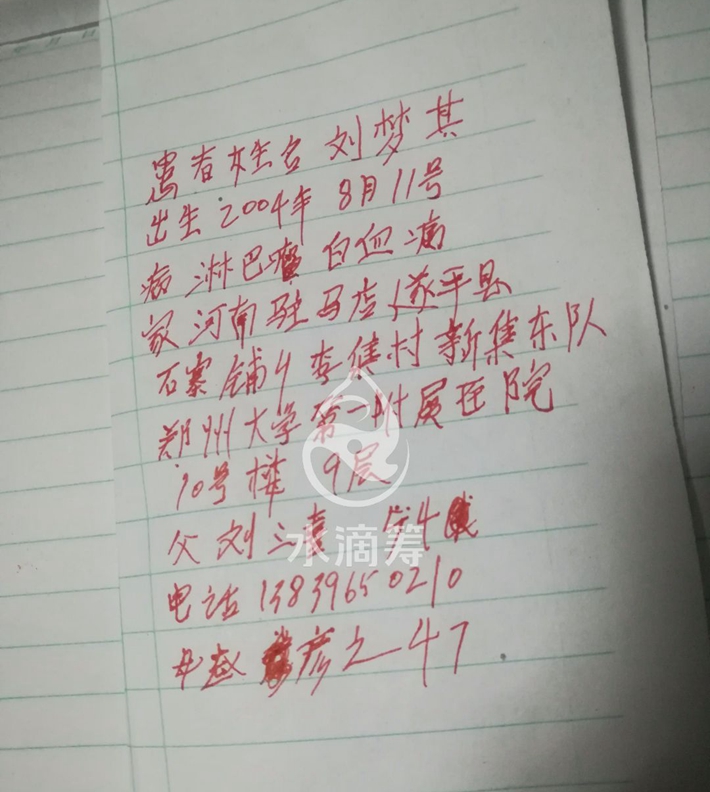 患者姓名 刘梦其
出生 2004年 8月11号
病 淋巴瘤 白血病
家 河南驻马店 遂平县
石寨铺乡 李集村 新集东队
郑州大学第一附属医院
10号楼 9层
父 刘
水滴筹
电话 13839650210
47